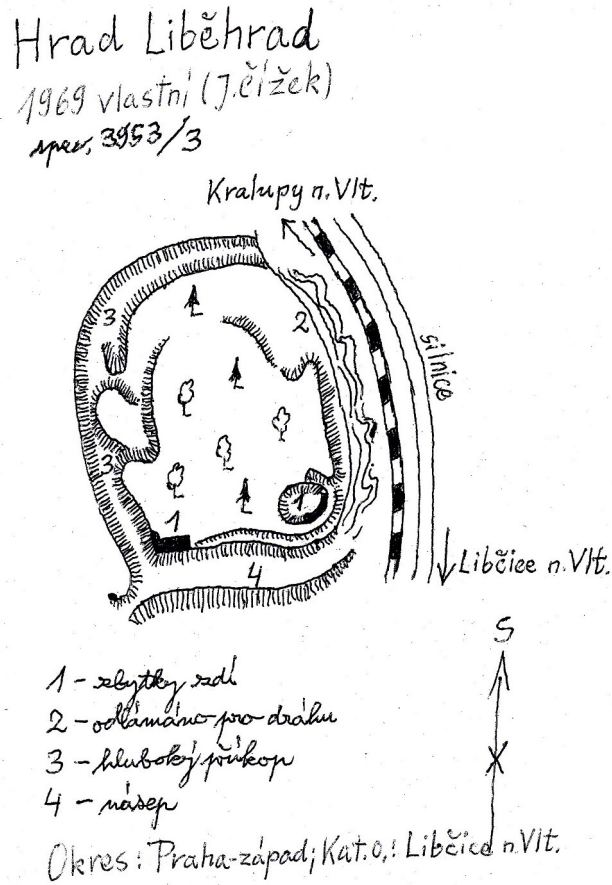 Hrad Liběhrad
1969 vlastní (J.Čížek)
spec. 3953/3
Kralupy n.Vlt.
3
2
silnice
3
1
1
4
Libčice n.Vlt.
S
1 - zbytky zdí
2 - odlámáno pro dráhu
3 - hluboký příkop
4 - násep
Okres: Praha-západ; Kat.o.: Libčice n.Vlt.